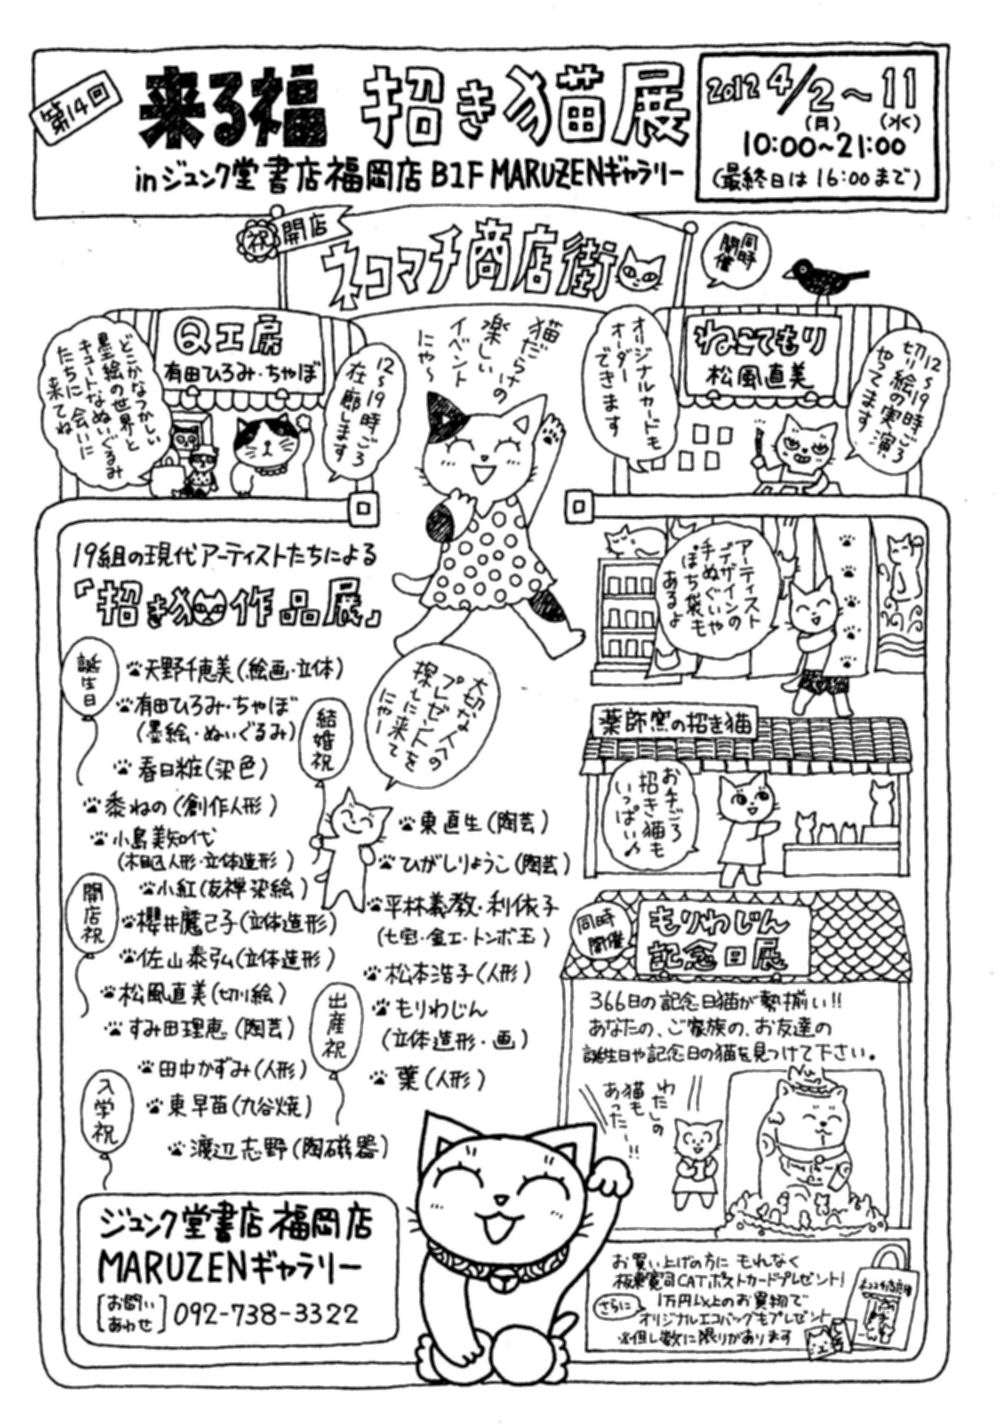 第14回
来る福 招き猫展
inジュンク堂書店福岡店B1F MARUZENギャラリー
2012 4/2〜11
(月) (水)
10:00〜21:00
(最終日は16:00まで)
祝 開店
ネコマチ商店街
同時開催
Q工房
有田ひろみ・ちゃぼ
どこかなつかしい
墨絵の世界と
キュートなぬいぐるみ
たちに会いに
来てね
12〜19時ごろ
在廊します
猫だらけの
楽しい
イベント
にゃ〜
オリジナルカードも
オーダー
できます
ねこてもり
松風直美
12〜19時ごろ
切り絵の実演
やってます
19組の現代アーティストたちによる
「招き猫作品展」
誕生日
天野千恵美(絵画・立体)
有田ひろみ・ちゃぼ
(墨絵・ぬいぐるみ)
春日粧(染色)
黍ねの(創作人形)
小島美知代
(木目込人形・立体造形)
小紅(友禅染絵)
開店祝
櫻井魔己子(立体造形)
佐山泰弘(立体造形)
松風直美(切り絵)
すみ田理恵(陶芸)
田中かずみ(人形)
入学祝
東早苗(九谷焼)
渡辺志野(陶磁器)
結婚祝
大切な人への
プレゼントを
探しに来て
にゃー
東直生(陶芸)
ひがしりょうこ(陶芸)
平林義教・利依子
(七宝・金工・トンボ玉)
松本浩子(人形)
出産祝
もりわじん
(立体造形・画)
葉(人形)
アーティスト
デザインの
手ぬぐいや
ぽち袋も
あるよ
薬師窯の招き猫
お手ごろ
招き猫も
いっぱい♪
同時開催
もりわじん
記念日展
366日の記念日猫が勢揃い!!
あなたの、ご家族の、お友達の
誕生日や記念日の猫を見つけて下さい。
わたしの
猫も
あったー!!
ジュンク堂書店福岡店
MARUZENギャラリー
[お問い
あわせ] 092-738-3322
お買い上げの方にもれなく
板東寛司CATポストカードプレゼント!
さらに 1万円以上のお買物で
オリジナルエコバッグもプレゼント
※但し数に限りがあります